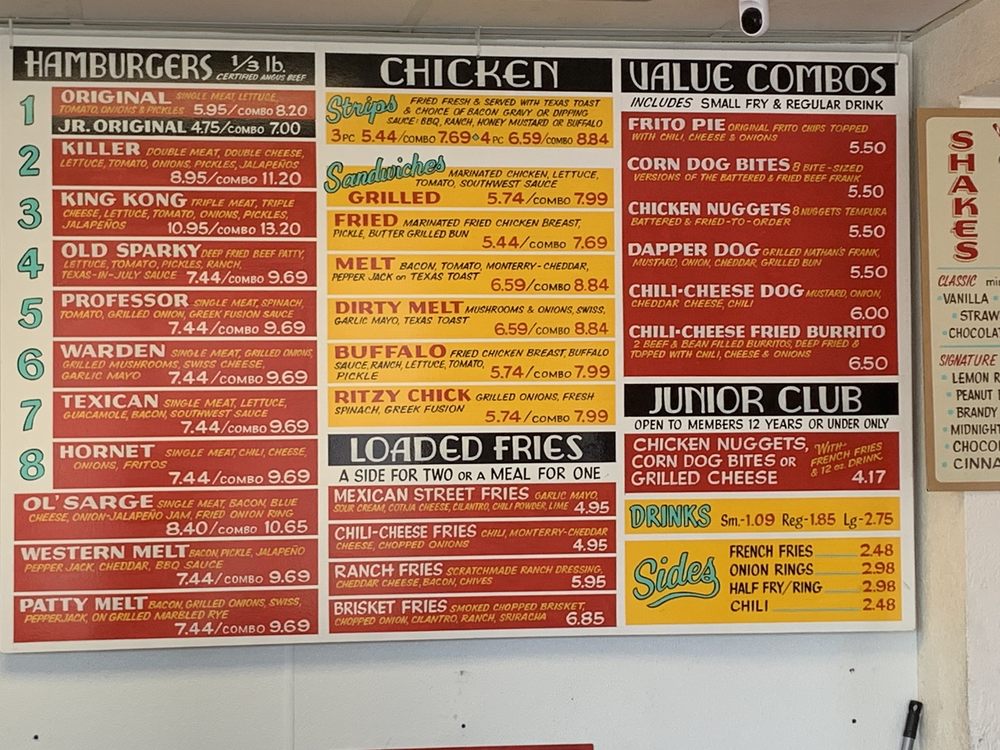 HAMBURGERS 1/3 lb.
CERTIFIED ANGUS BEEF
1 ORIGINAL SINGLE MEAT, LETTUCE,
TOMATO, ONIONS & PICKLES 5.95/COMBO 8.20
JR. ORIGINAL 4.75/COMBO 7.00
2 KILLER DOUBLE MEAT, DOUBLE CHEESE,
LETTUCE, TOMATO, ONIONS, PICKLES, JALAPEÑOS
8.95/COMBO 11.20
3 KING KONG TRIPLE MEAT, TRIPLE
CHEESE, LETTUCE, TOMATO, ONIONS, PICKLES,
JALAPEÑOS 10.95/COMBO 13.20
4 OLD SPARKY DEEP FRIED BEEF PATTY,
LETTUCE, TOMATO, PICKLES, RANCH,
TEXAS-IN-JULY SAUCE 7.44/COMBO 9.69
5 PROFESSOR SINGLE MEAT, SPINACH,
TOMATO, GRILLED ONION, GREEK FUSION SAUCE
7.44/COMBO 9.69
6 WARDEN SINGLE MEAT, GRILLED ONIONS,
GRILLED MUSHROOMS, SWISS CHEESE,
GARLIC MAYO 7.44/COMBO 9.69
7 TEXICAN SINGLE MEAT, LETTUCE,
GUACAMOLE, BACON, SOUTHWEST SAUCE
7.44/COMBO 9.69
8 HORNET SINGLE MEAT, CHILI, CHEESE,
ONIONS, FRITOS
7.44/COMBO 9.69
OL' SARGE SINGLE MEAT, BACON, BLUE
CHEESE, ONION-JALAPEÑO JAM, FRIED ONION RING
8.40/COMBO 10.65
WESTERN MELT BACON, PICKLE, JALAPEÑO
PEPPER JACK, CHEDDAR, BBQ SAUCE
7.44/COMBO 9.69
PATTY MELT BACON, GRILLED ONIONS, SWISS,
PEPPERJACK, ON GRILLED MARBLED RYE
7.44/COMBO 9.69
CHICKEN
Strips FRIED FRESH & SERVED WITH TEXAS TOAST
& CHOICE OF BACON GRAVY OR DIPPING
SAUCE: BBQ, RANCH, HONEY MUSTARD OR BUFFALO
3 PC 5.44/COMBO 7.69 4 PC 6.59/COMBO 8.84
Sandwiches MARINATED CHICKEN, LETTUCE,
TOMATO, SOUTHWEST SAUCE
GRILLED 5.74/COMBO 7.99
FRIED MARINATED FRIED CHICKEN BREAST,
PICKLE, BUTTER GRILLED BUN
5.44/COMBO 7.69
MELT BACON, TOMATO, MONTERRY-CHEDDAR,
PEPPER JACK on TEXAS TOAST
6.59/COMBO 8.84
DIRTY MELT MUSHROOMS & ONIONS, SWISS,
GARLIC MAYO, TEXAS TOAST
6.59/COMBO 8.84
BUFFALO FRIED CHICKEN BREAST, BUFFALO
SAUCE, RANCH, LETTUCE, TOMATO,
PICKLE 5.74/COMBO 7.99
RITZY CHICK GRILLED ONIONS, FRESH
SPINACH, GREEK FUSION
5.74/COMBO 7.99
LOADED FRIES
A SIDE FOR TWO OR A MEAL FOR ONE
MEXICAN STREET FRIES GARLIC MAYO,
SOUR CREAM, COTIJA CHEESE, CILANTRO, CHILI POWDER, LIME 4.95
CHILI-CHEESE FRIES CHILI, MONTERREY-CHEDDAR
CHEESE, CHOPPED ONIONS 4.95
RANCH FRIES SCRATCHMADE RANCH DRESSING,
CHEDDAR CHEESE, BACON, CHIVES 5.95
BRISKET FRIES SMOKED CHOPPED BRISKET,
CHOPPED ONION, CILANTRO, RANCH, SRIRACHA 6.85
VALUE COMBOS
INCLUDES SMALL FRY & REGULAR DRINK
FRITO PIE ORIGINAL FRITO CHIPS TOPPED
WITH CHILI, CHEESE & ONIONS
5.50
CORN DOG BITES 8 BITE-SIZED
VERSIONS OF THE BATTERED & FRIED BEEF FRANK
5.50
CHICKEN NUGGETS 8 NUGGETS TEMPURA
BATTERED & FRIED-TO-ORDER
5.50
DAPPER DOG GRILLED NATHAN'S FRANK,
MUSTARD, ONION, CHEDDAR, GRILLED BUN
5.50
CHILI-CHEESE DOG MUSTARD, ONION,
CHEDDAR CHEESE, CHILI
6.00
CHILI-CHEESE FRIED BURRITO
2 BEEF & BEAN FILLED BURRITOS, DEEP FRIED &
TOPPED WITH CHILI, CHEESE & ONIONS
6.50
JUNIOR CLUB
OPEN TO MEMBERS 12 YEARS OR UNDER ONLY
CHICKEN NUGGETS,
CORN DOG BITES OR
GRILLED CHEESE
WITH
FRENCH FRIES
& 12 oz. DRINK
4.17
DRINKS Sm.-1.09 Reg-1.85 Lg-2.75
Sides
FRENCH FRIES 2.48
ONION RINGS 2.98
HALF FRY/RING 2.98
CHILI 2.48
SHAKES
CLASSIC
VANILLA
STRAW
CHOCOLA
SIGNATURE
LEMON
PEANUT
BRANDY
MIDNIGHT
CHOCO
CINNA